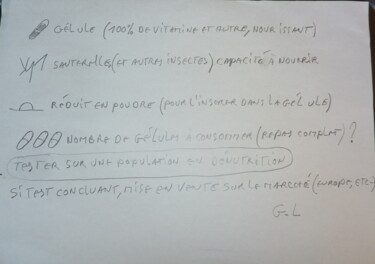 GÉLULE (100% DE VITAMINE ET AUTRE, NOURISSANT)
SAUTERELLE (ET AUTRES INSECTES) CAPACITÉ À NOURRIR
RÉDUIT EN POUDRE (POUR L'INSERER DANS LA GÉLULE)
NOMBRE DE GÉLULES À CONSOMMER (REPAS COMPLET)?
TESTER SUR UNE POPULATION EN DÉNUTRITION
SI TEST CONCLUANT, MISE EN VENTE SUR LE MARCHÉ (EUROPE, ETC-)
G.L